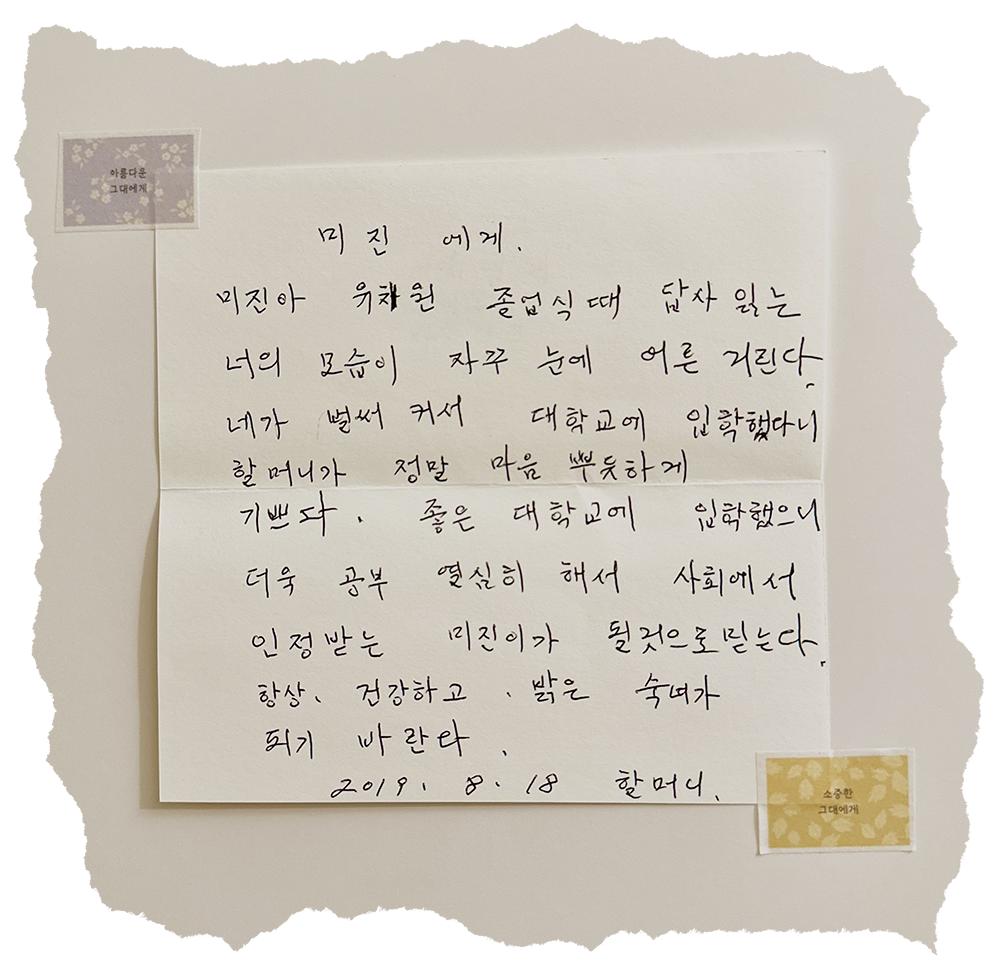 아름다운
그대에게
미진 에게.
미진아 유치원 졸업식때 답사 읽는
너의 모습이 자꾸 눈에 어른 거린다.
네가 벌써 커서 대학교에 입학했다니
할머니가 정말 마음 뿌듯하게
기쁘다. 좋은 대학교에 입학했으니
더욱 공부 열심히 해서 사회에서
인정받는 미진이가 될것으로 믿는다.
항상. 건강하고. 밝은 숙녀가
되기 바란다.
2019. 8. 18 할머니.
소중한
그대에게